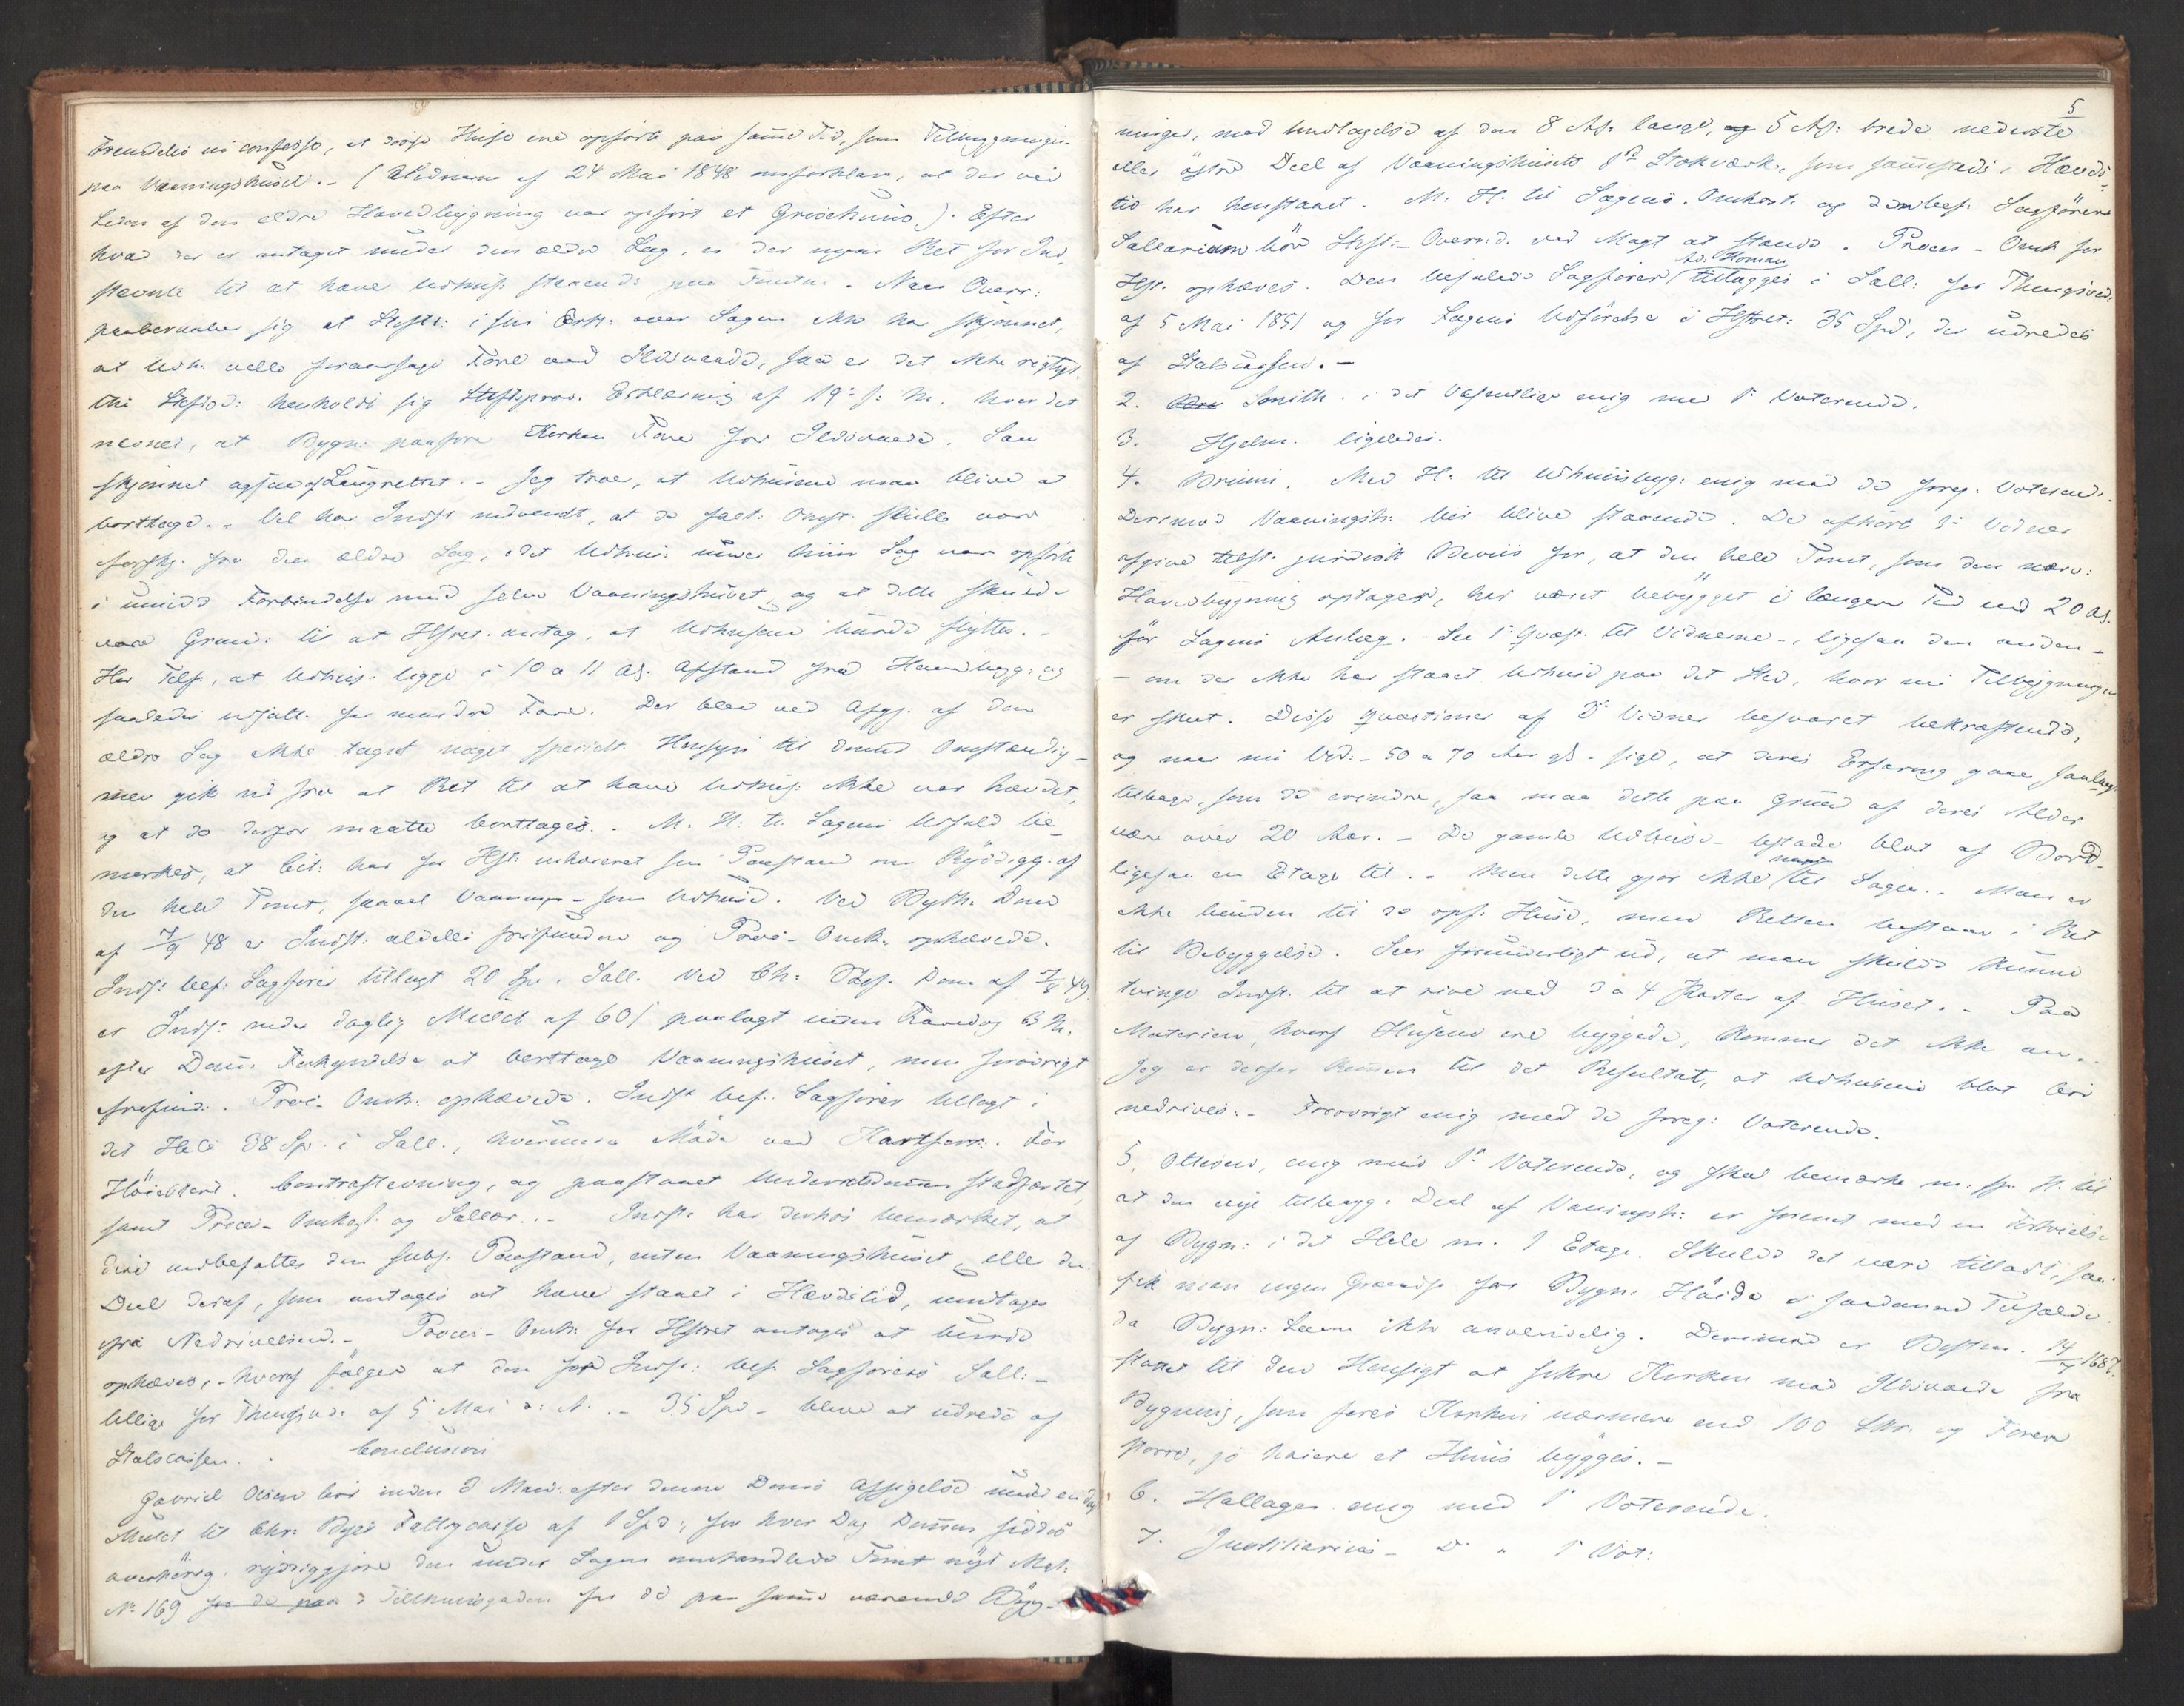 fremdeles in confesso, at disse Huse ere opførte paa samme Tid, som Tilbygningen
paa Vaaningshuset. - (Vidnerne af 24 Mai 1848 omforklare, at der ved
Siden af den ældre Hovedbygning var opført et Grisehuus). Efter
hvad der er antaget under den ældre Sag, er der ingen Ret for Ind-
stevnte til at have Udhus: staaende paa Tomten. Naar Overr:
paaberaaber sig at Stiftsd: i sin Erkl: over Sagen ikke har skjønnet,
at Udh: ville foraarsage Fare ved Ildsvaade, saa er det ikke rigtigt.
thi Stiftsd: henholdt sig Stiftsprov. Erklæring af 19de s: M. hvor det
meenes, at Bygn: paaføre Kirken Fare for Ildsvaade. Saa
skjønnes ogsaa af Laugrettet. - Jeg troer, at Udhusene maa blive at
borttage. - Vel har Indst. indvendt, at de fact: Omst. skulle være
forskj. fra den ældre Sag, idet Udhus: under hiin Sag var opførte
i umidd. Forbindelse med selve Vaaningshuset, og at dette skulde
være Grund: til at HSret. antog, at Udhusene burde flyttes. -
Her Tilf, at Udhus: ligge i 10 a 11 Al. Afstand fra Hovedbygn: og
saaledes udsatt. for mindre Fare. Der blev ved Afgj: af den
ældre Sag ikke taget noget specielt Hensyn til denne Omstændig-
men gik ud fra at Ret til at have Udhus: ikke var hævdet,
og at de derfor maatte borttages. - M. H: t. Sagens Udfald be-
mærkes, at Cit: har for HSt: indskrænket sin Paastand om Ryddigg: af
den hele Tomt, saavel Vaanings- som Udhuse. Ved Bythi: Dom
af 7/9 48 er Indst: aldeles frifunden og Proc- Omk: ophævede.
Indst: bef: Sagfører tillagt 20 Spd. Sall. Ved Ch: Stiftsd. Dom af 7/5 49
er Indst: under daglig Mulct af 60 ß paalagt inden Fardag 3 M.
efter Doms Forkyndelse at borttage Vaaningshuset, men forøvrigt
frifund: Proc- Omk: ophævede. Indst. bef. Sagfører tillagt i
det Hele 38 Sp. i Sall.,
Høiesteret. Contrastevning, og paastaaet Underretsdommen stadfæstet,
samt Proces- Omkost. og Sallar. .. Indst: har derhos bemærket, at
deri indbefattes den subs. Paastand, enten Vaaningshuset, eller den
Deel deraf, som antages at have staaet i Hævdstid, undtages
fra Nedrivelsen. - Proces- Omk: for HSret antages at burde
ophæves, - hvoraf følger at den for Indst: bef. Sagførers Sall: -
tillige for Thingsvid: af 5 Mai d: A. - 35 Spd - bliver at udrede af
Statscassen. . Conclusion
Gavriel Olsen bør inden 3 Maan: efter denne Doms Afsigelse under en dag
Mulct til Chr: Byes Fattigcasse af 1 Spd:, for hver Dag Dommen siddes
overhørig, ryddiggjøre den under Sagen omhandlede Tomt nyt Mat:
No 169 for de paa i Tilthunsgaden for de paa samme værende Byg-
5
ninger, med Undtagelse af den 8 Al: lange, og 5 Al: brede nederste
eller østre Deel af Vaaningshusets 1ste Stokværk, som sammesteds i Hævds-
tid har henstaaet. M. H. til Sagens Omkost: og den bef: Sagførers
Sallarium bør Stift- Overrd. ved Magt at stande. Proces- Omk for
HSt. ophæves. Den befalede Sagfører Ad: Homan tillægges i Sall: for Thingsvid:
af 5 Mai 1851 og for Sagens Udførelse i HSret: 35 Spd, der udredes
af Statscassen. -
2. Smith. i det Væsentlige enig med 1ste Voterende.
3. Hjelm. ligeledes.
4. Brinni. Med H. til Udhuusbyg: enig med de foreg. Voterende.
Derimod Vaaningsh: bør blive staaende. De afhørte 3de Vidner
afgive tilst. juridisk Beviis for, at den hele Tomt, som den nærv:
Hovedbygning optager, har været bebygget i længere Tid end 20 Al.
før Sagens Anlæg. See 1ste Qvæst. til Vidnerne - ligesaa den anden -
- om der ikke har staaet Udhuus paa det Sted, hvor nu Tilbygningen
er skeet. Disse Qvæstioner af 3de Vidner besvaret bekræftende,
og naar nu Vid: - 50 a 70 Aar gl. - sige, at deres Erfaring gaaer saalangt
tilbage, som de erindre, saa maa dette paa Grund af deres Alder
være over 20 Aar. - De gamle Udhuse bestode blot af Bord-
ligesaa en Etage til. . Men dette gjør ikke noget til Sagen. . Man er
ikke bunden til de opf. Huse, men Retten bestaaer i Ret
til Bebyggelse. Seer forunderligt ud, at man skulde kunne
tvinge Indst. til at rive ned 3 a 4 Kanter af Huset. - Paa
Materien, hvoraf Husene ere byggede, kommer det ikke an. -
Jeg er derfor kommen til det Resultat, at Udhusene blot bør
nedrives: - Forøvrigt enig med de foreg: Voterende.
5. Ottesen, enig med 1ste Voterende, og skal bemærke m. H. til
at den nye tilbygg. Deel af Vaaningsh: er forenet med en Udvidelse
af Bygn: i det Hele m. 1 Etage. Skulde det være tilladt, saa
fik man ingen Grændse for Bygn. Høide i saadanne Tilfælde.
da Bygn: Loven ikke anvendelig. Derimod er Bestem. 14/7 1687
sattet til den Hensigt at sikre Kirken mod Ildsvaade fra
Bygning, som føres Kirken nærmere end 100 Skr. og Faren
større, jo høiere et Huus bygges. -
6. Hallager enig med 1ste Voterende.
7. Justitiarius - Do " 1ste Vot: